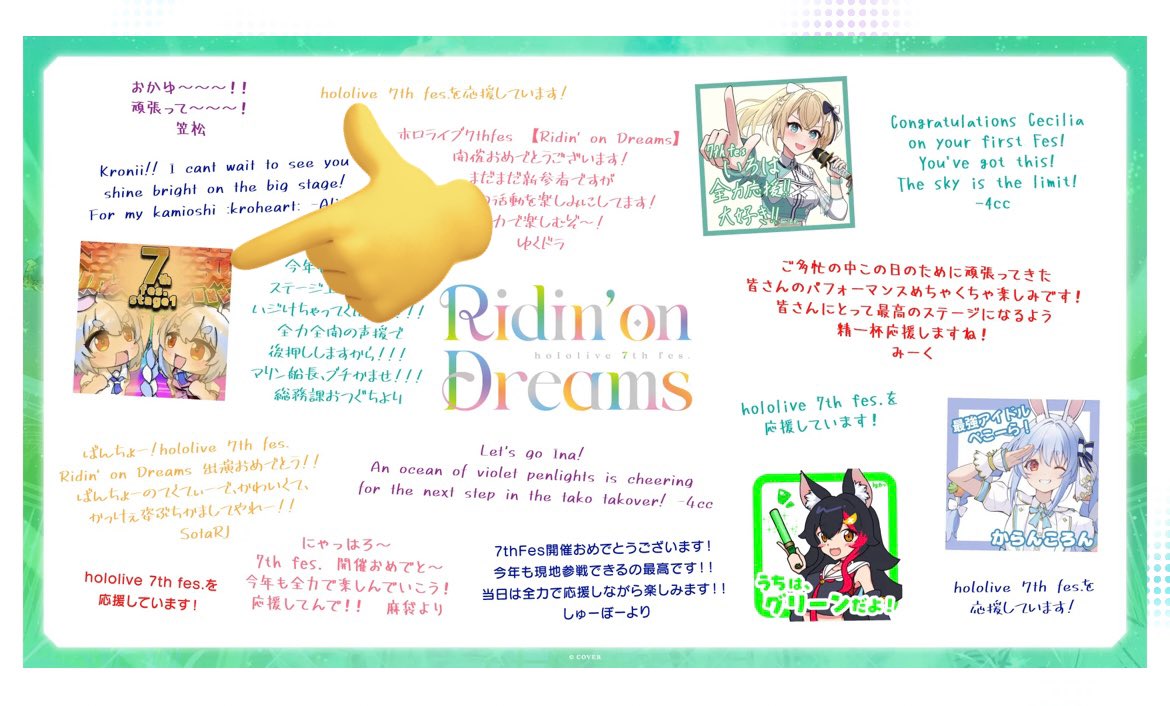 おかゆ〜〜〜!!
頑張って〜〜〜!
笠松
hololive 7th fes.を応援しています!
Kronii!! I cant wait to see you
shine bright on the big stage!
For my kamioshi :kroheart:
ホロライブ7thfes 【Ridin' on Dreams】
開催おめでとうございます!
まだまだ新参者ですが
活動を楽しみにしてます!
力で楽しむぞ〜!
ゆくドラ
7th fes
いろは
全力応援!!
大好き!!
Congratulations Cecilia
on your first Fes!
You've got this!
The sky is the limit!
-4cc
7th
fes.
stage1
今年
ステージ
全力全開の声援で
後押ししますから!!!
マリン船長、ブチかませ!!!
総務課おつぐちより
Ridin' on
hololive 7th fes.
Dreams
ご多忙の中この日のために頑張ってきた
皆さんのパフォーマンスめちゃくちゃ楽しみです!
皆さんにとって最高のステージになるよう
精一杯応援しますね!
みーく
hololive 7th fes.を
応援しています!
最強アイドル
ぺこーら!
からんころん
ばんちょー!hololive 7th fes.
Ridin' on Dreams 出演おめでとう!!
ばんちょーのてくてぃーで、かわいくて、
かっけぇ姿ぶちかましてやれー!!
SotaRJ
Let's go Ina!
An ocean of violet penlights is cheering
for the next step in the tako takeover! -4cc
hololive 7th fes.を
応援しています!
にゃっはろ〜
7th fes. 開催おめでと〜
今年も全力で楽しんでいこう!
応援してんで!! 麻袋より
7thFes開催おめでとうございます!
今年も現地参戦できるの最高です!!
当日は全力で応援しながら楽しみます!!
しゅーぼーより
うちは、
グリーンだよ!
hololive 7th fes.を
応援しています!
© COVER